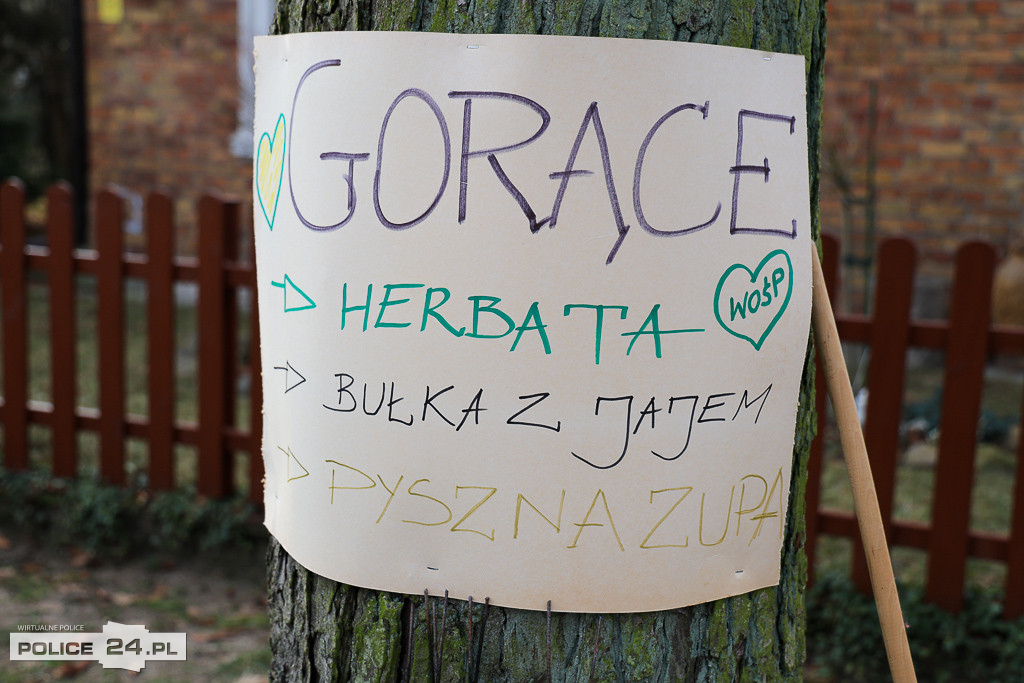 GORĄCE
HERBATA
WOŚP
BUŁKA Z JAJEM
PYSZNA ZUPA
WIRTUALNE POLICE
POLICE 24.PL